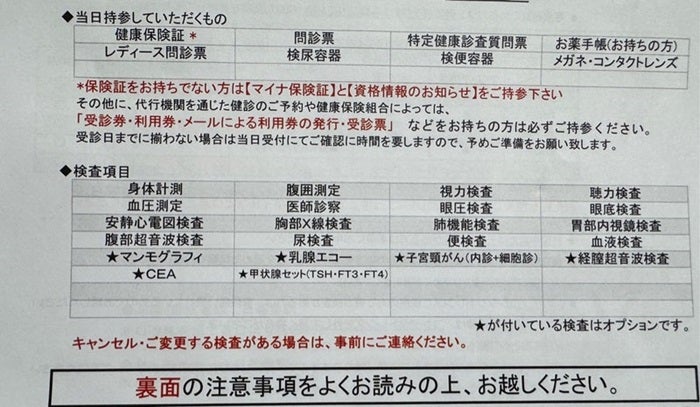 ◆当日持参していただくもの
健康保険証 * 問診票 特定健康診査質問票 お薬手帳(お持ちの方)
レディース問診票 検尿容器 検便容器 メガネ・コンタクトレンズ
*保険証をお持ちでない方は【マイナ保険証】と【資格情報のお知らせ】をご持参下さい
その他に、代行機関を通じた健診のご予約や健康保険組合によっては、
「受診券・利用券・メールによる利用券の発行・受診票」 などをお持ちの方は必ずご持参ください。
受診日までに揃わない場合は当日受付にてご確認に時間を要しますので、予めご準備をお願い致します。
◆検査項目
身体計測 腹囲測定 視力検査 聴力検査
血圧測定 医師診察 眼圧検査 眼底検査
安静心電図検査 胸部X線検査 肺機能検査 胃部内視鏡検査
腹部超音波検査 尿検査 便検査 血液検査
★マンモグラフィ ★乳腺エコー ★子宮頸がん(内診+細胞診) ★経膣超音波検査
★CEA ★甲状腺セット(TSH・FT3・FT4)
★が付いている検査はオプションです。
キャンセル・ご変更する検査がある場合は、事前にご連絡ください。
裏面の注意事項をよくお読みの上、お越しください。